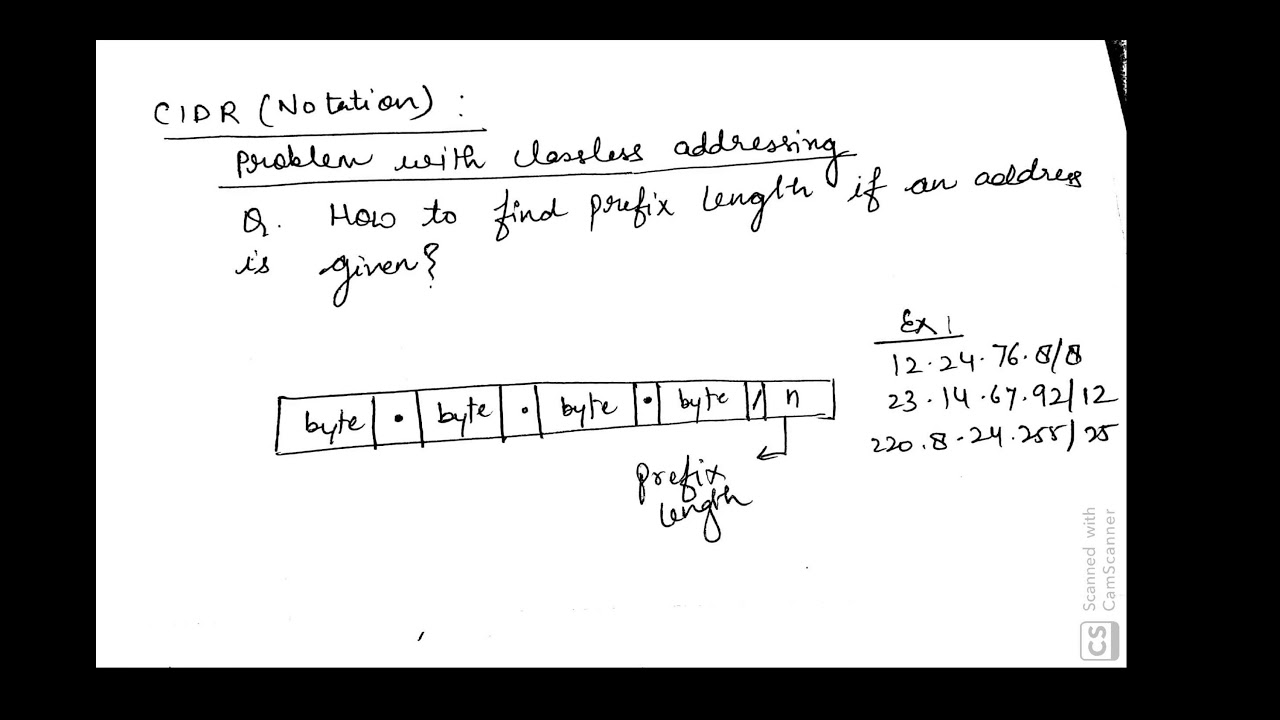 CIDR (Notation) :
Problem with classless addressing
Q. How to find prefix length if an address
is given?
Ex 1
12.24.76.8/8
23.14.67.92/12
220.8.24.255/25
byte . byte . byte . byte / n
prefix
length
Scanned with
CamScanner
CS